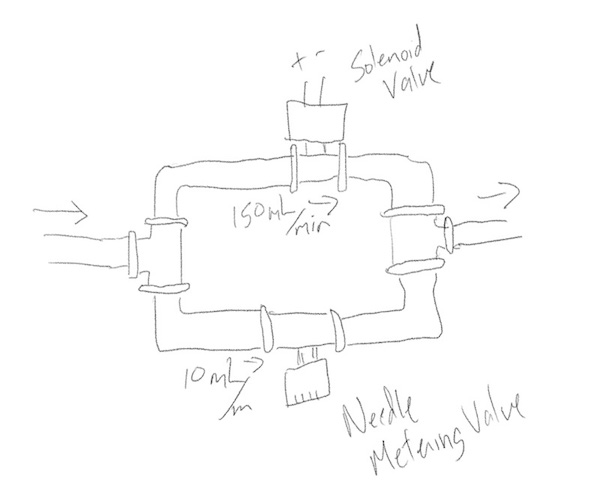 + -
Solenoid
Valve
150mL
/min
10mL
/m
Needle
Metering Valve